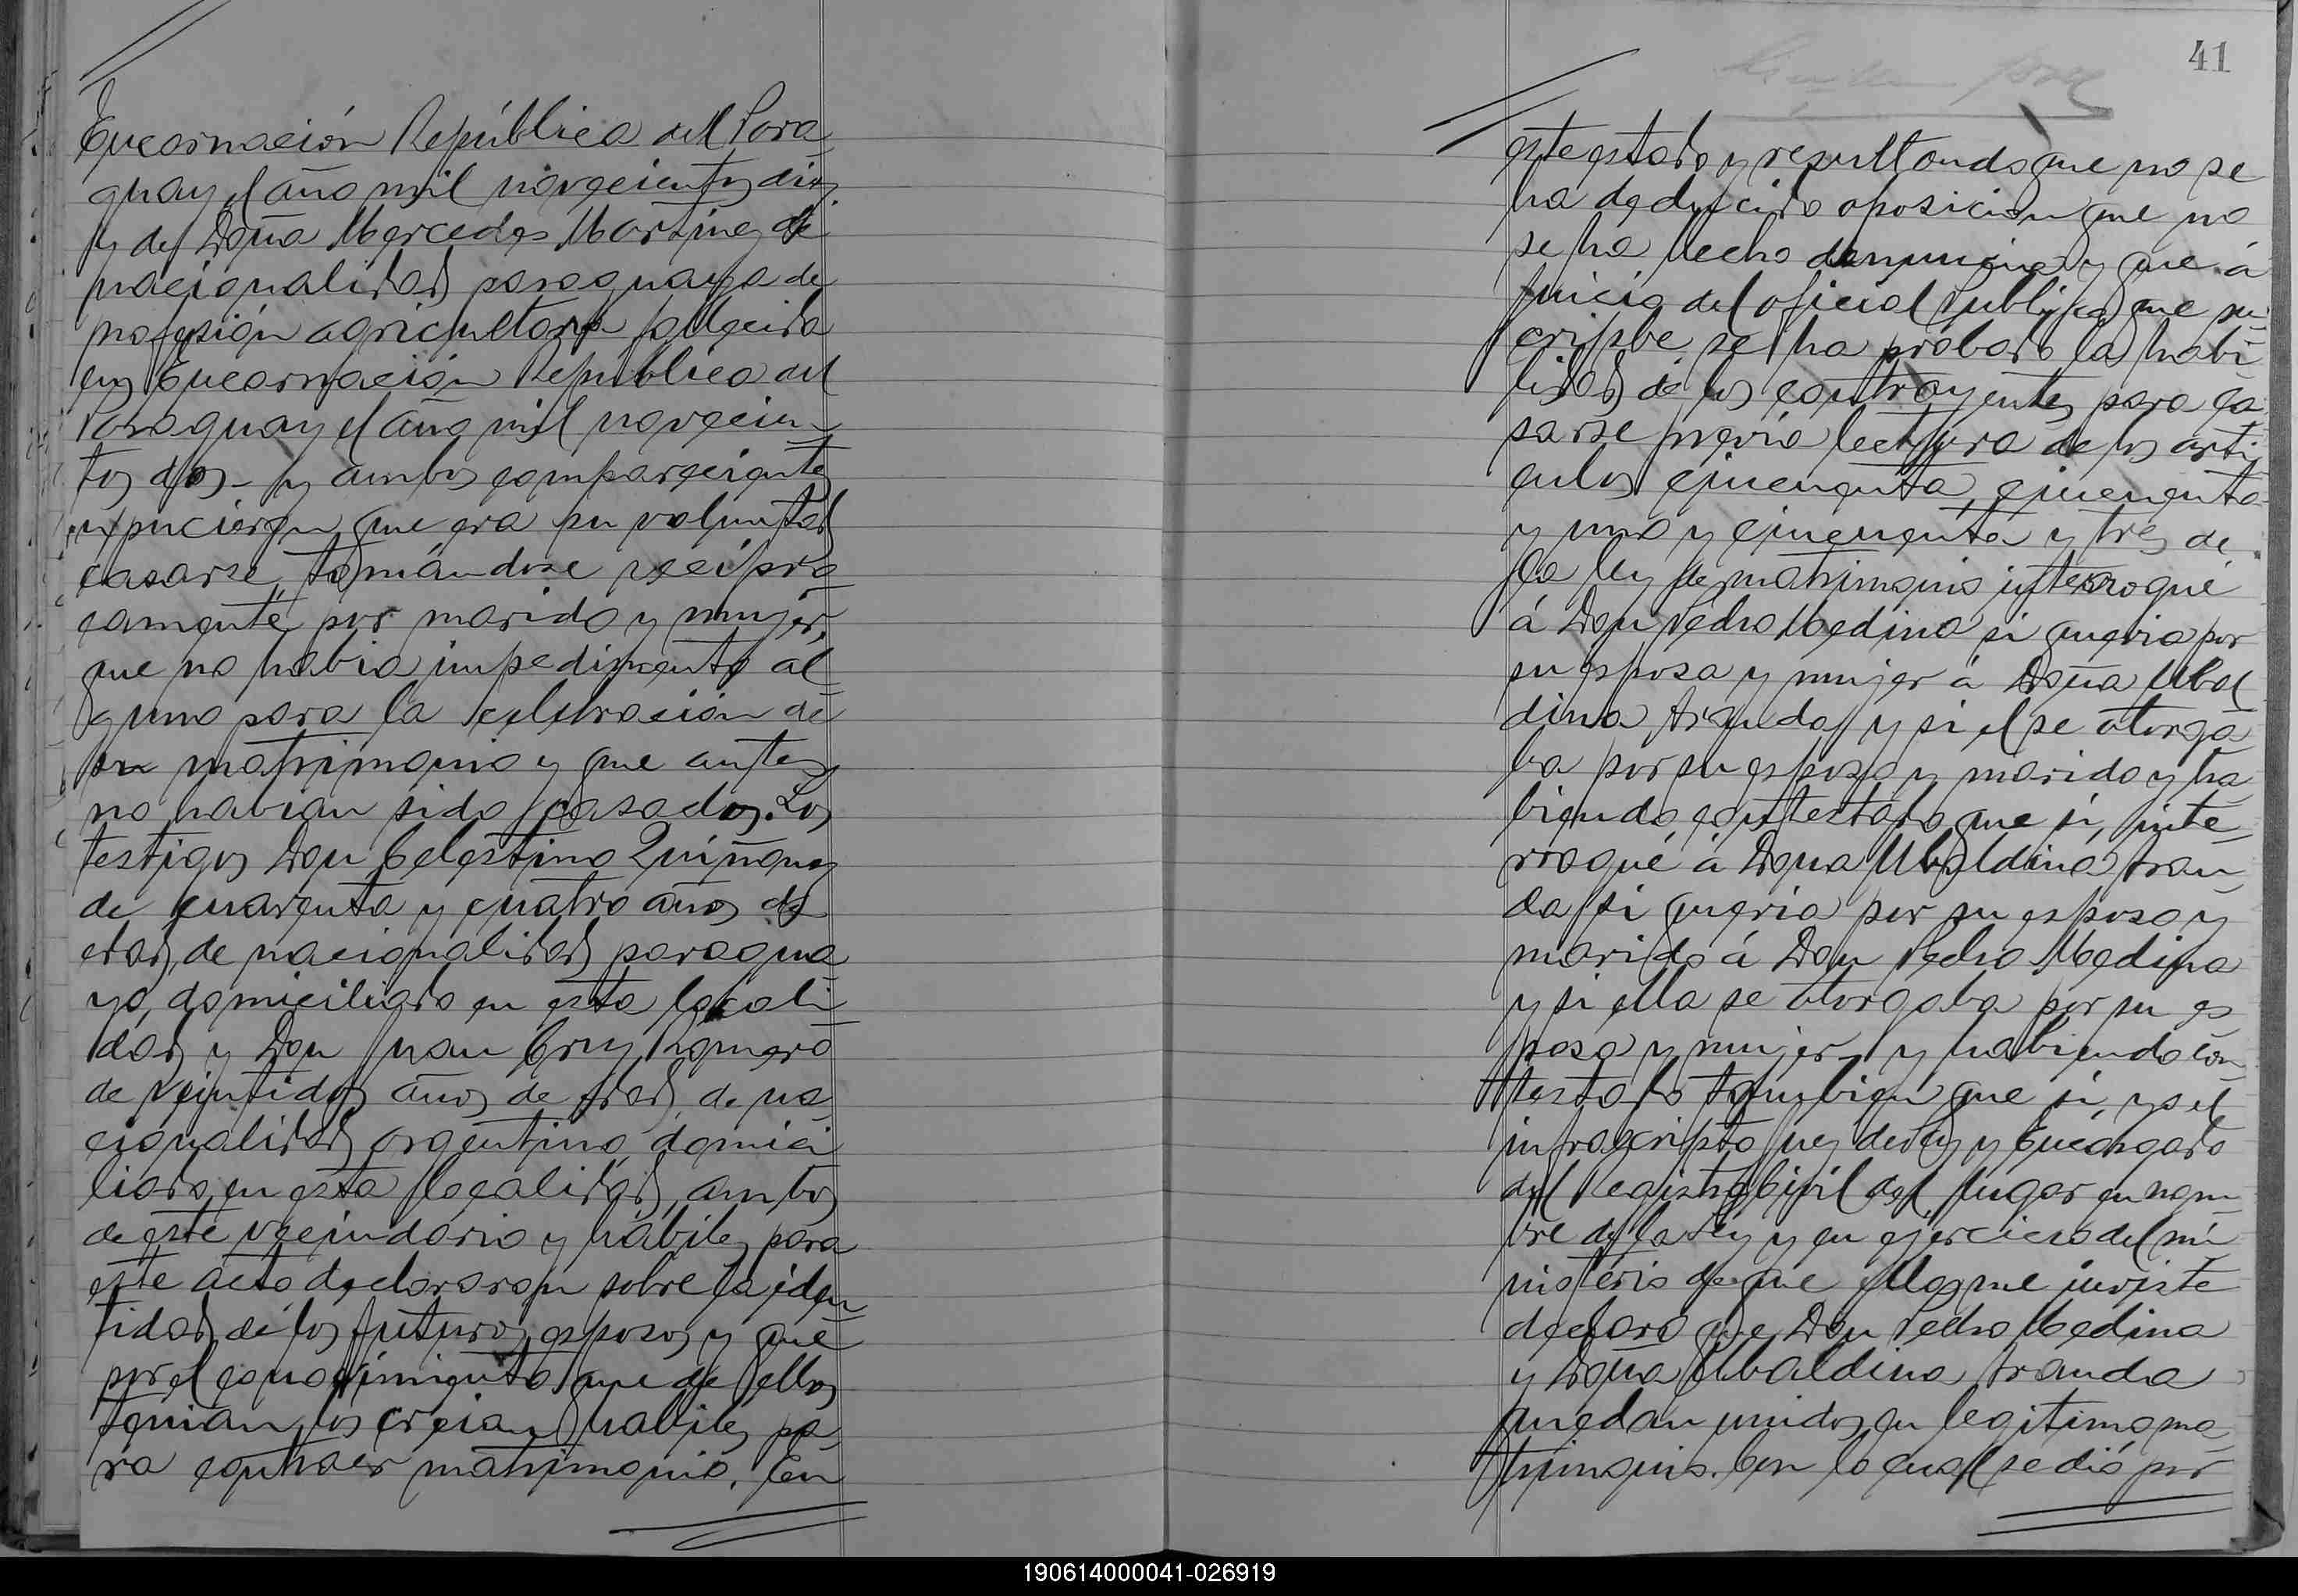 Encarnación República del Para
guay el año mil novecientos diez
y de Doña Mercedes Martinez de
nacionalidad paraguaya de
profesión agricultora fallecida
en Encarnación República del
Paraguay el año mil novecien
tos dos - y ambos comparecientes
expucieron que era su voluntad
casarse, tomándose recípro
camente por marido y mujer,
que no habia impedimento al
guno para la celebración de
su matrimonio y que antes
no habian sido casados. Los
testigos Don Celestino Quiñones
de cuarenta y cuatro años de
edad, de nacionalidad paragua
yo, domiciliado en esta locali
dad y Don Juan Cruz Romero
de veintidos años de edad, de na
cionalidad argentino, domici
liado en esta localidad, ambos
de este vecindario y hábiles para
este acto declararon sobre la iden
tidad de los futuros esposos y que
por el conocimiento que de ellos
tenian los creian habiles pa
ra contraer matrimonio. En
41
este estado y resultando que no se
ha deducido oposicion que no
se ha hecho denuncia y que á
juicio del oficial Publico que su
scribe se ha probado la habi
lidad de los contrayentes para ca
sarse previa lectura de los arti
culos cincuenta, cincuenta
y uno y cincuenta y tres de
la ley de matrimonio interrogué
á Don Pedro Medina si queria por
su esposa y mujer á Doña Ubal
dina Aranda y si el se otorga
ba por su esposo y marido y ha
biendo contestado que si, inte
rrogué á Doña Ubaldina Aran
da si queria por su esposo y
marido á Don Pedro Medina
y si ella se otorgaba por su es
posa y mujer y habiendo con
testado tambien que si, yo el
infrascripto Juez de Paz y Encargado
del Registro Civil del lugar en nom
bre de la Ley y en ejercicio del mi
nisterio de que ella me inviste
declaro que Don Pedro Medina
y Doña Ubaldina Aranda
quedan unidos en legitimo ma
trimonio. Con lo cual se dió por
190614000041-026919